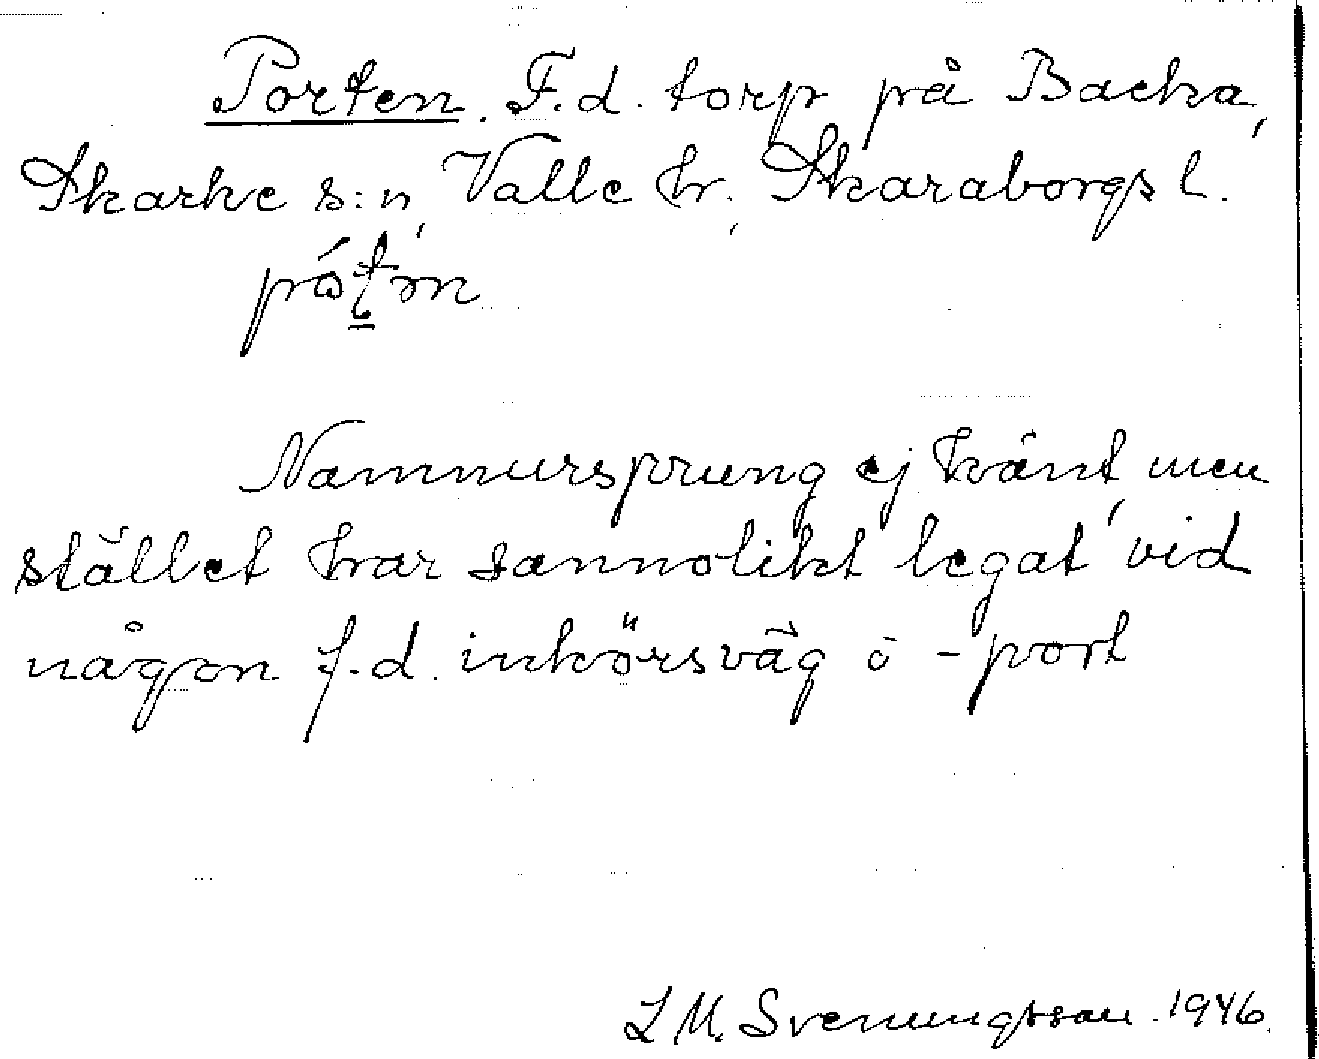 Porten. F.d. torp på Backa,
Skarke s:n, Valle hr., Skaraborgs l.
Namnursprung ej känt, men
stället har sannolikt legat vid
någon f.d. inkörsväg o -port
L M. Svenungsson. 1946.